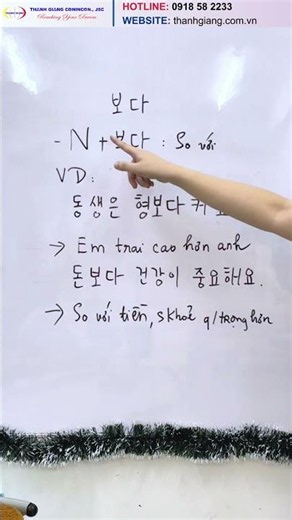 THANH GIANG CONINCON., JSC
Reaching Your Dream
HOTLINE: 0918 58 2233
WEBSITE: thanhgiang.com.vn
보다
- N + 보다 : So với
VD:
동생은 형보다 커
→ Em trai cao hơn anh
돈보다 건강이 중요해요.
→ So với tiền, skhoẻ q/trọng hơn